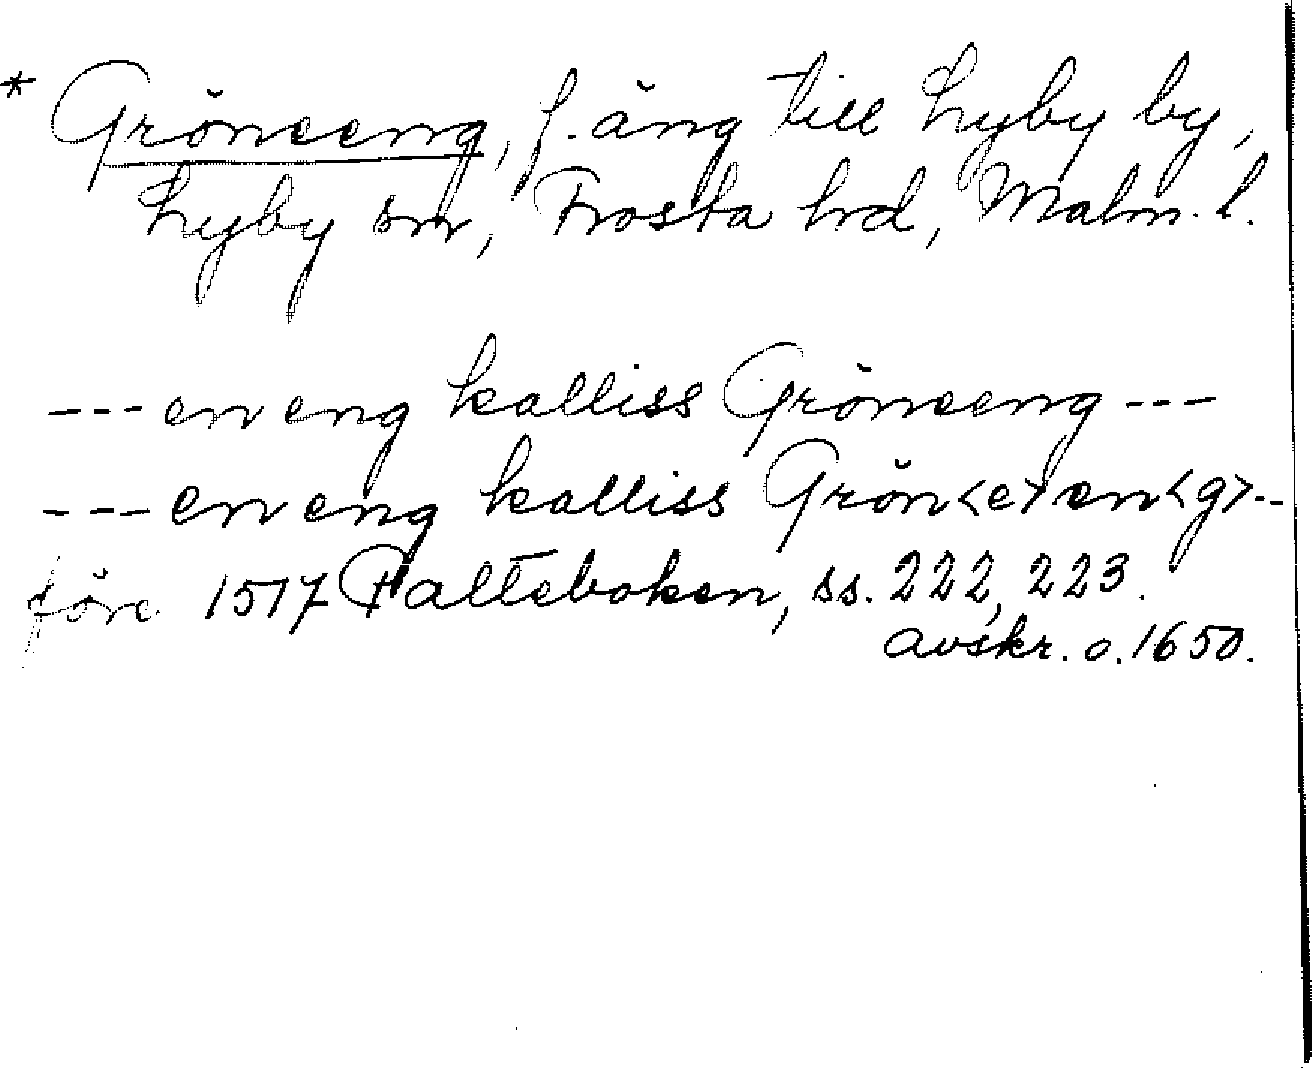 * Gröneeng, f. äng till Lyby by,
Lyby sn, Frosta hd, Malm. l.
--- en eng kalliss Gröneeng ---
--- en eng kalliss Grön<e>en<g> --
före 1517 Palteboken, ss. 222, 223.
avskr. o. 1650.